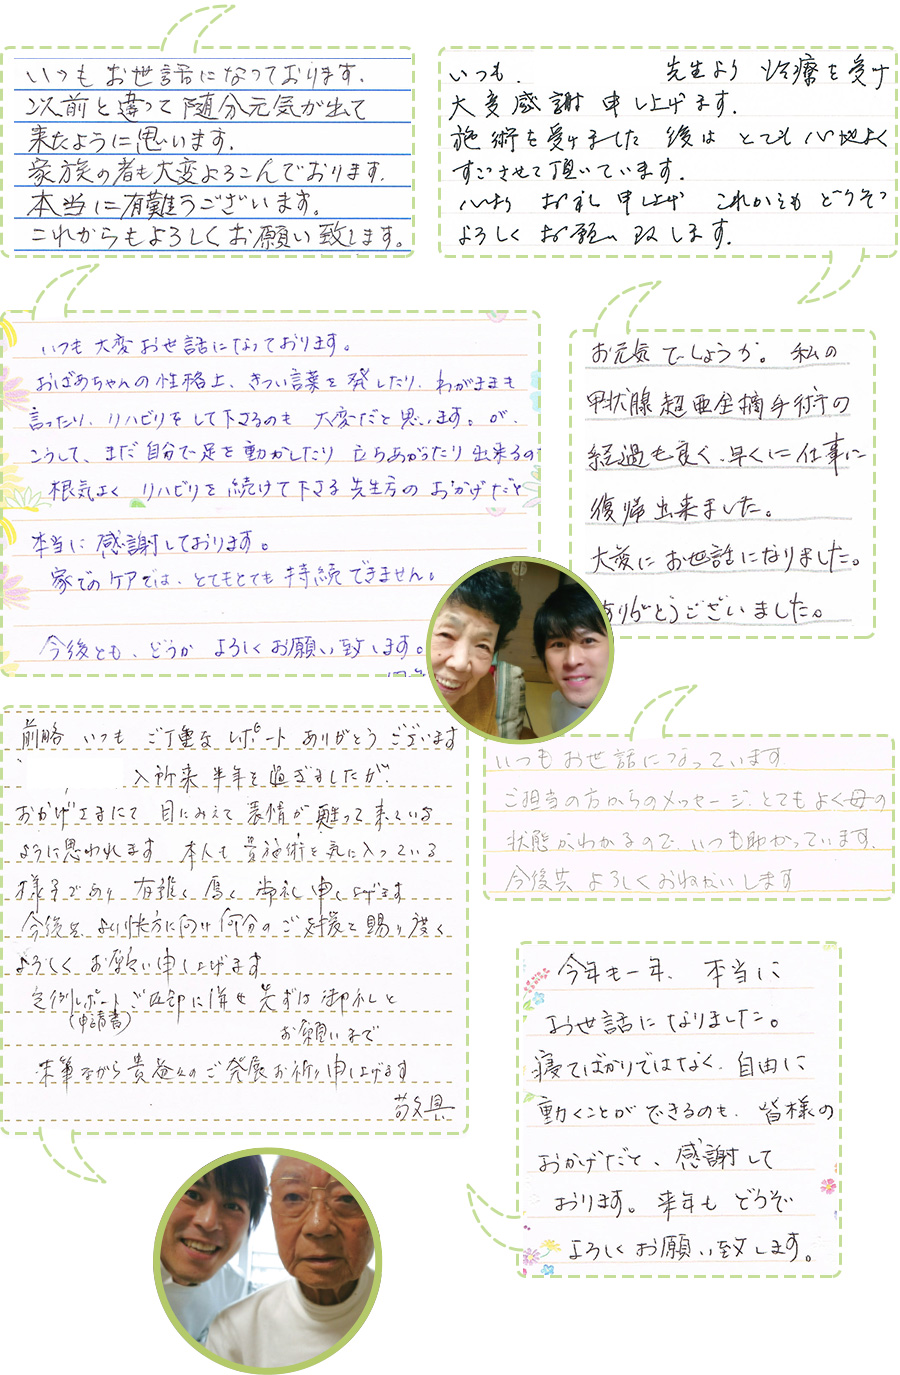 いつもお世話になっております.
以前と違って随分元気が出て
来たように思います.
家族の者も大変よろこんでおります.
本当に有難うございます。
これからもよろしくお願い致します。
いつも. 先生より 治療を受け
大変感謝 申し上げます.
施術を受けました 後は とても 心地よく
すごさせて頂いています.
心より お礼 申し上げ これからも どうぞ
よろしく お願い 致します.
いつも 大変お世話になっております。
おばあちゃんの性格上、きつい言葉を発したり、わがままも
言ったり、リハビリをして下さるのも 大変だと思います。が、
こうして、まだ自分で足を動かしたり 立ちあがったり出来るの
根気よく リハビリを続けて下さる先生方の おかげだと
本当に 感謝しております。
家でのケアでは、とてもとても 持続できません。
今後とも、どうか よろしくお願い致します。
お元気でしょうか。 私の
甲状腺超亜全摘手術の
経過も良く、早くに仕事に
復帰出来ました。
大変に お世話になりました。
ありがとうございました。
前略 いつも ご丁重な レポート ありがとう ございます
入所来 半年を過ぎましたが、
おかげさまにて 目にみえて 表情が甦って来ている
ように思われます 本人も 貴施術を気に入っている
様子であり 有難く 厚く 御礼申し上げます
今後共、より快方に向け何分のご支援を賜り度く
よろしく お願い申し上げます
定例レポート(申請書)ご返却に併せ 先ずは 御礼と
お願いまで
末筆ながら貴益々のご発展お祈り申し上げます
敬具
いつもお世話になっています
ご担当の方からのメッセージ、とてもよく母の
状態がわかるので、いつも助かっています.
今後共 よろしくおねがいします
今年も一年、 本当に
お世話になりました。
寝てばかりではなく、自由に
動くことができるのも、皆様の
おかげだと、感謝して
おります。来年も どうぞ
よろしくお願い致します。